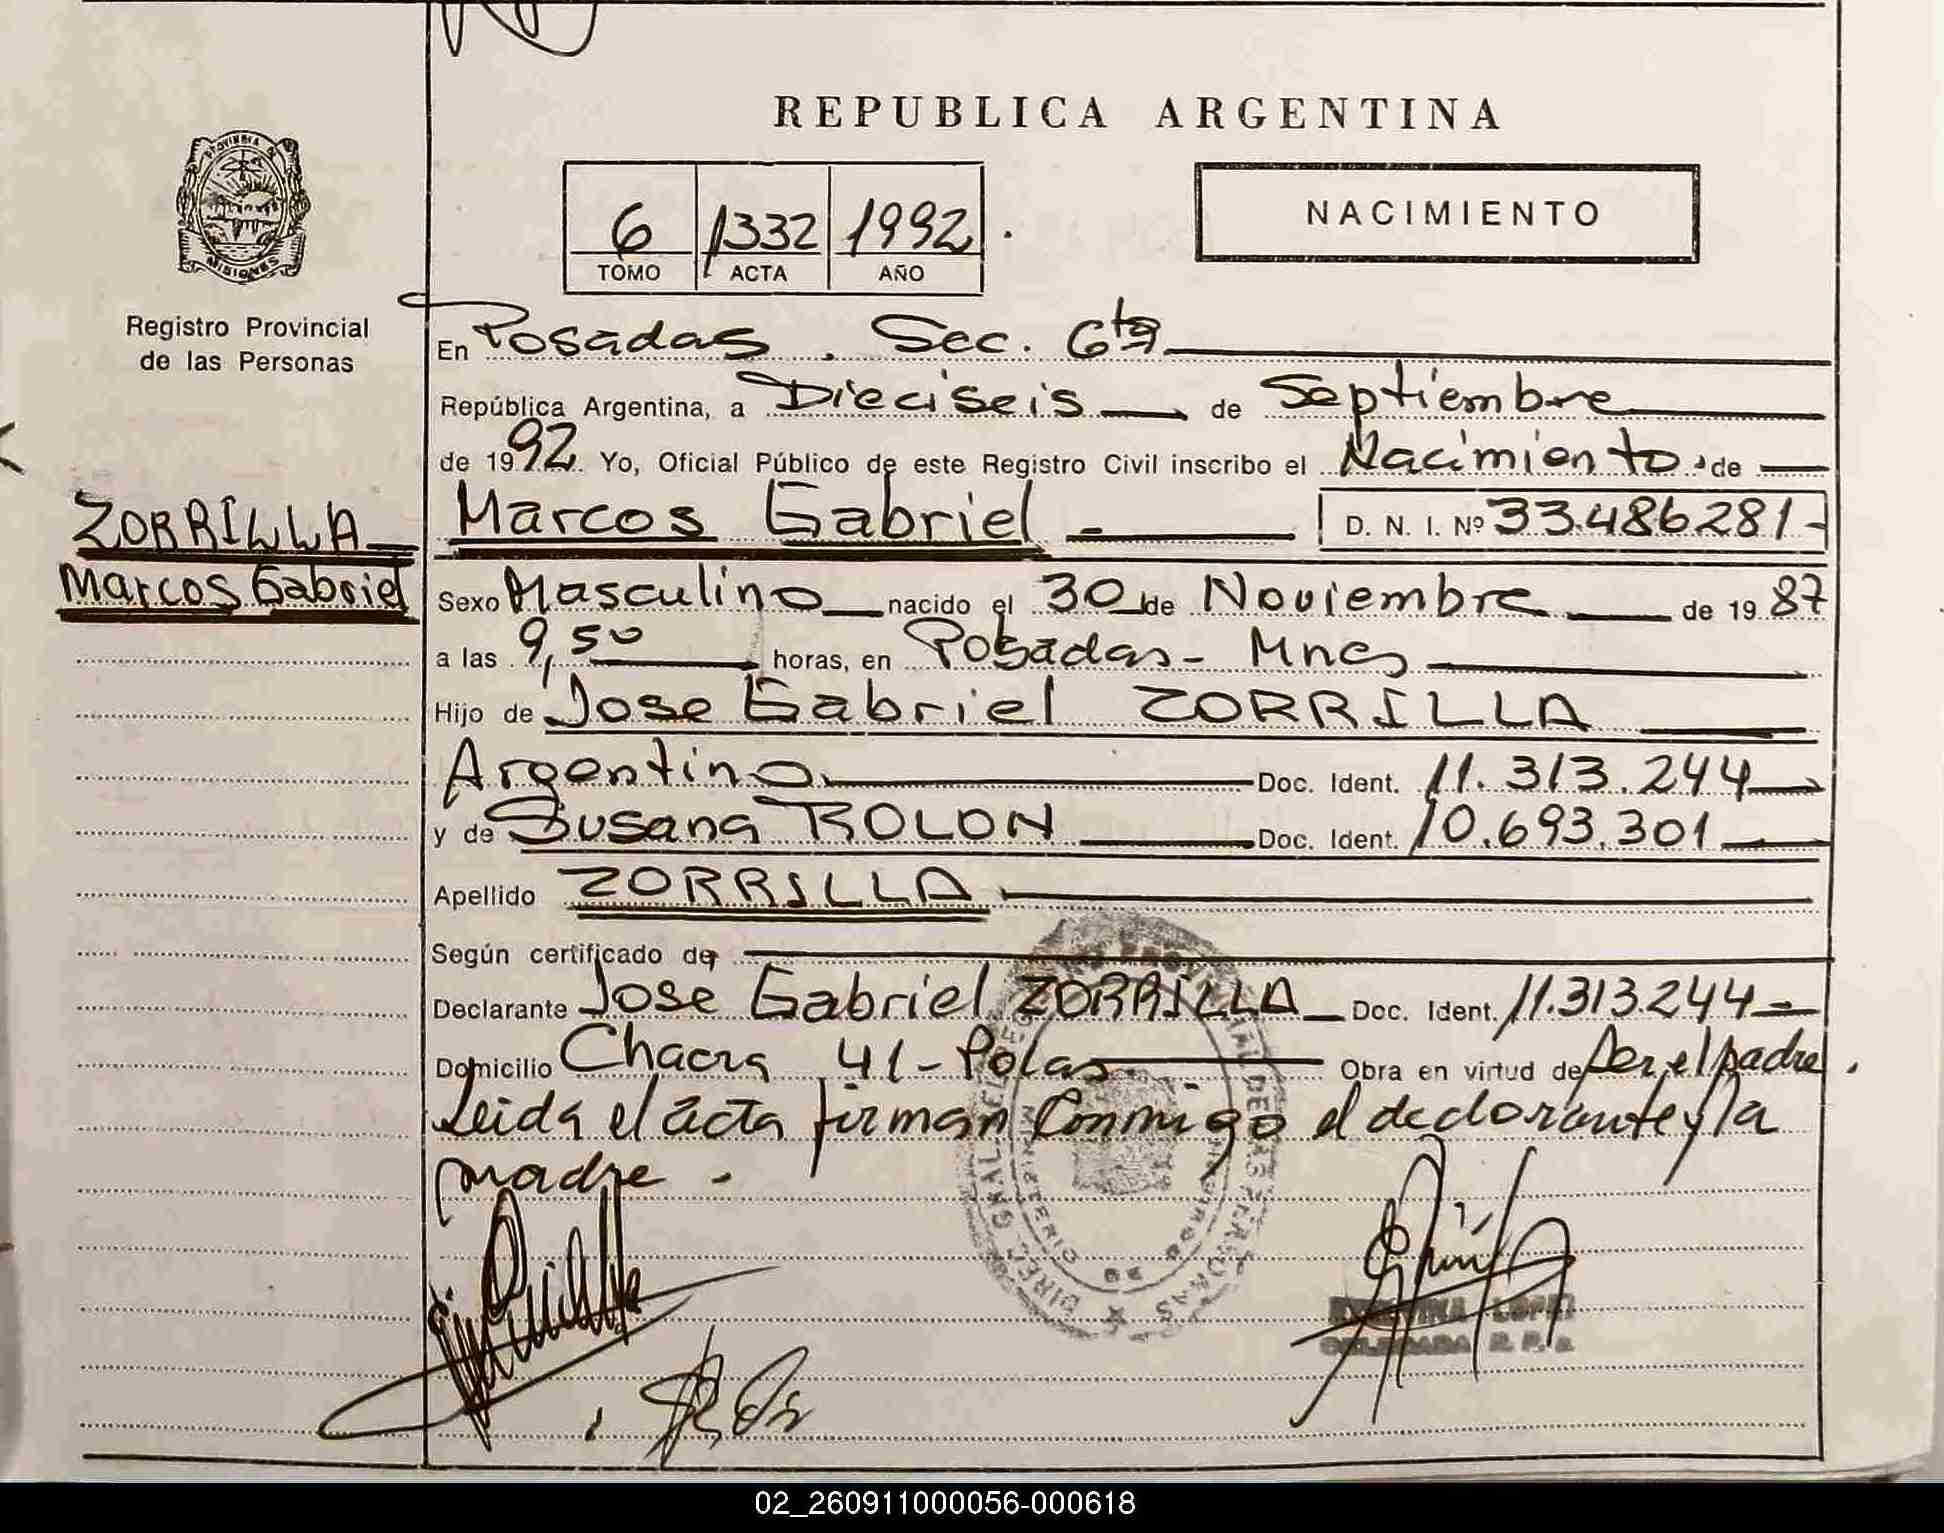 REPUBLICA ARGENTINA
PROVINCIA DE
MISIONES
Registro Provincial
de las Personas
6 1332 1992
TOMO ACTA AÑO
NACIMIENTO
En Posadas, Sec. 6ta
República Argentina, a Dieciseis de Septiembre
de 1992. Yo, Oficial Público de este Registro Civil inscribo el Nacimiento de
ZORRILLA
Marcos Gabriel
Marcos Gabriel - D. N. I. Nº 33.486281-
Sexo Masculino nacido el 30 de Noviembre de 1987
a las 9,50 horas, en Posadas - Mnes
Hijo de Jose Gabriel ZORRILLA
Argentino Doc. Ident. 11.313.244
y de Susana ROLON Doc. Ident. 10.693.301
Apellido ZORRILLA
Según certificado de
Declarante Jose Gabriel ZORRILLA Doc. Ident. 11.313.244-
Domicilio Chacra 41 - Polas Obra en virtud de Ser el padre.
Leida el acta firman Conmigo el declarante y la
madre.
02_260911000056-000618